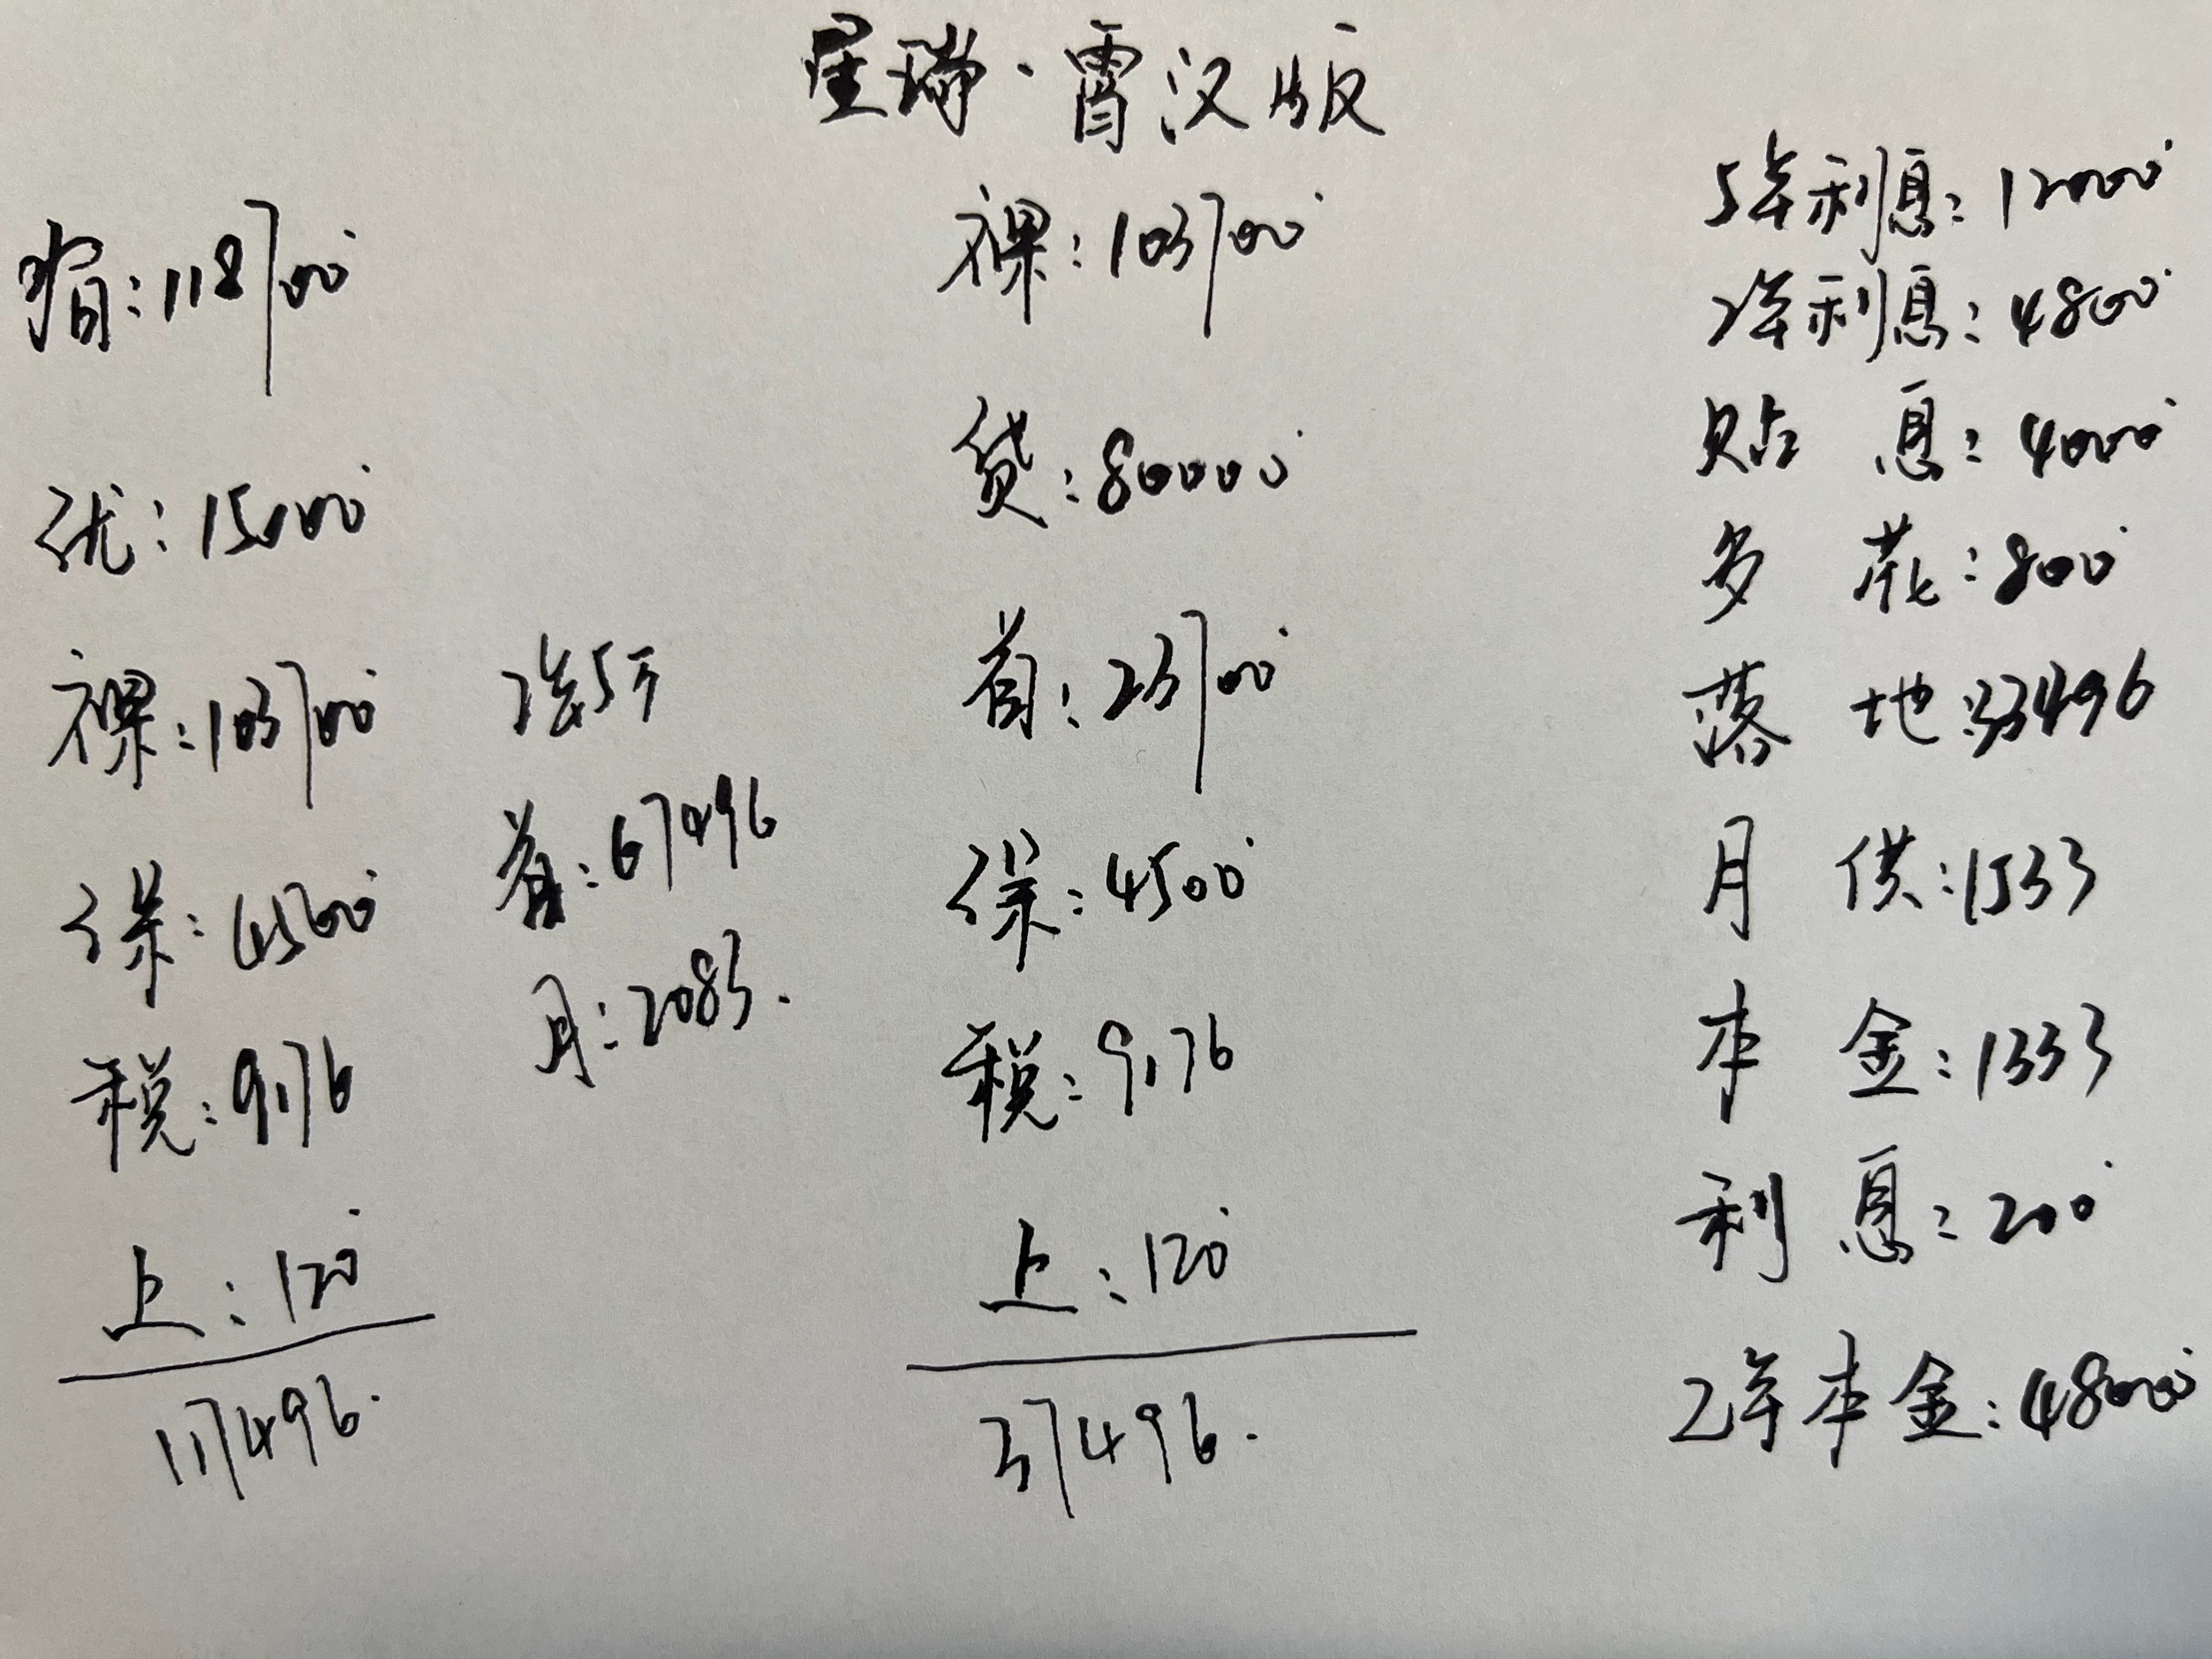 星瑞·霄汉版
指:118700
优:15000
裸:103700
保:4500
税:9176
上:120
117496.
2年5万
首:67496
月:2083.
裸:103700
贷:80000
首:23700
保:4500
税:9176
上:120
37496.
5年利息:12000
2年利息:4800
贴息:4000
多花:800
落地:33496
月供:1533
本金:1333
利息:200
2年本金:48000